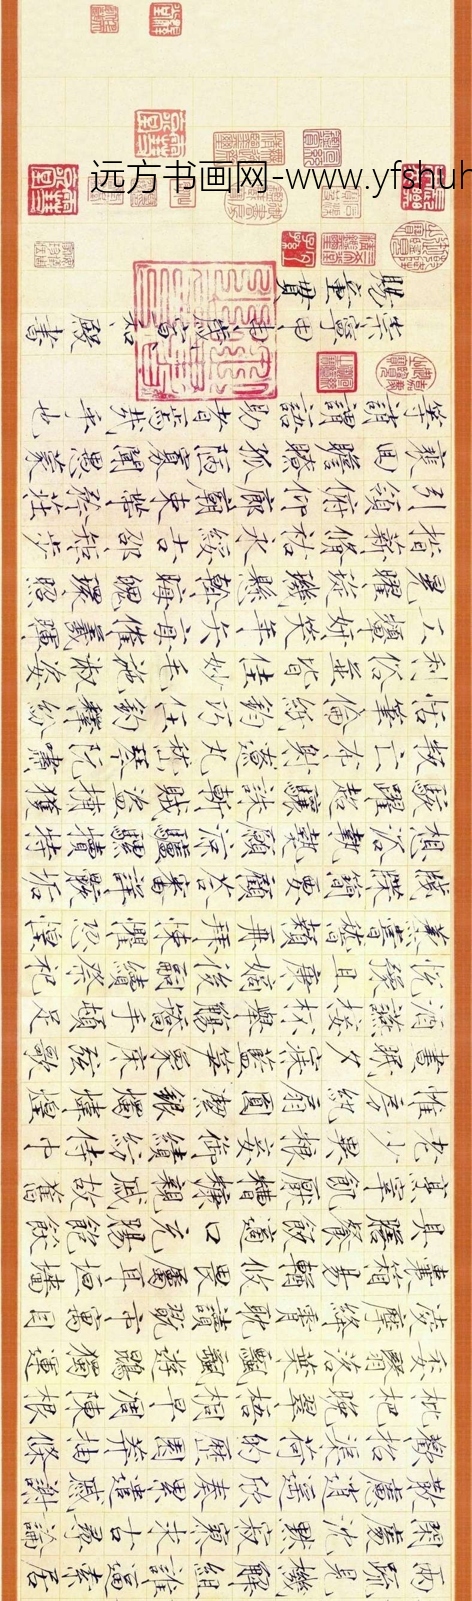 远方书画网-www.yfshuh
兩疏見機解組誰逼索居
閑處沉默寂寥求古尋論
散慮逍遙欣奏累遣慼謝
歡招渠荷的歷園莽抽條
枇杷晚翠梧桐早凋陳根
委翳落葉飄颻游鵾獨運
凌摩絳霄耽讀翫市寓目
囊箱易輶攸畏屬耳垣牆
具膳餐飯適口充腸飽飫
宰飢厭糟糠親戚故舊
老少異糧妾御績紡侍巾
帷房紈扇圓潔銀燭煒煌
晝眠夕寐藍笋象床弦歌
酒讌接杯舉觴矯手頓足
悅豫且康嫡後嗣續祭祀
蒸嘗稽顙再拜悚懼恐惶
牋牒簡要顧答審詳骸垢
想浴執熱願涼驢騾犢特
駭躍超驤誅斬賊盜捕獲
叛亡布射遼丸嵇琴阮嘯
恬筆倫紙鈞巧任釣釋紛
利俗並皆佳妙毛施淑姿
工顰妍笑年矢每催羲暉
晃曜旋璣懸斡晦魄環照
指薪脩祜永綏吉邵矩步
引領俯仰廊廟束帶矜莊
裴回瞻眺孤陋寡聞愚蒙
等誚謂語助者焉哉乎也
崇寧甲申歲宣和殿書
賜童貫